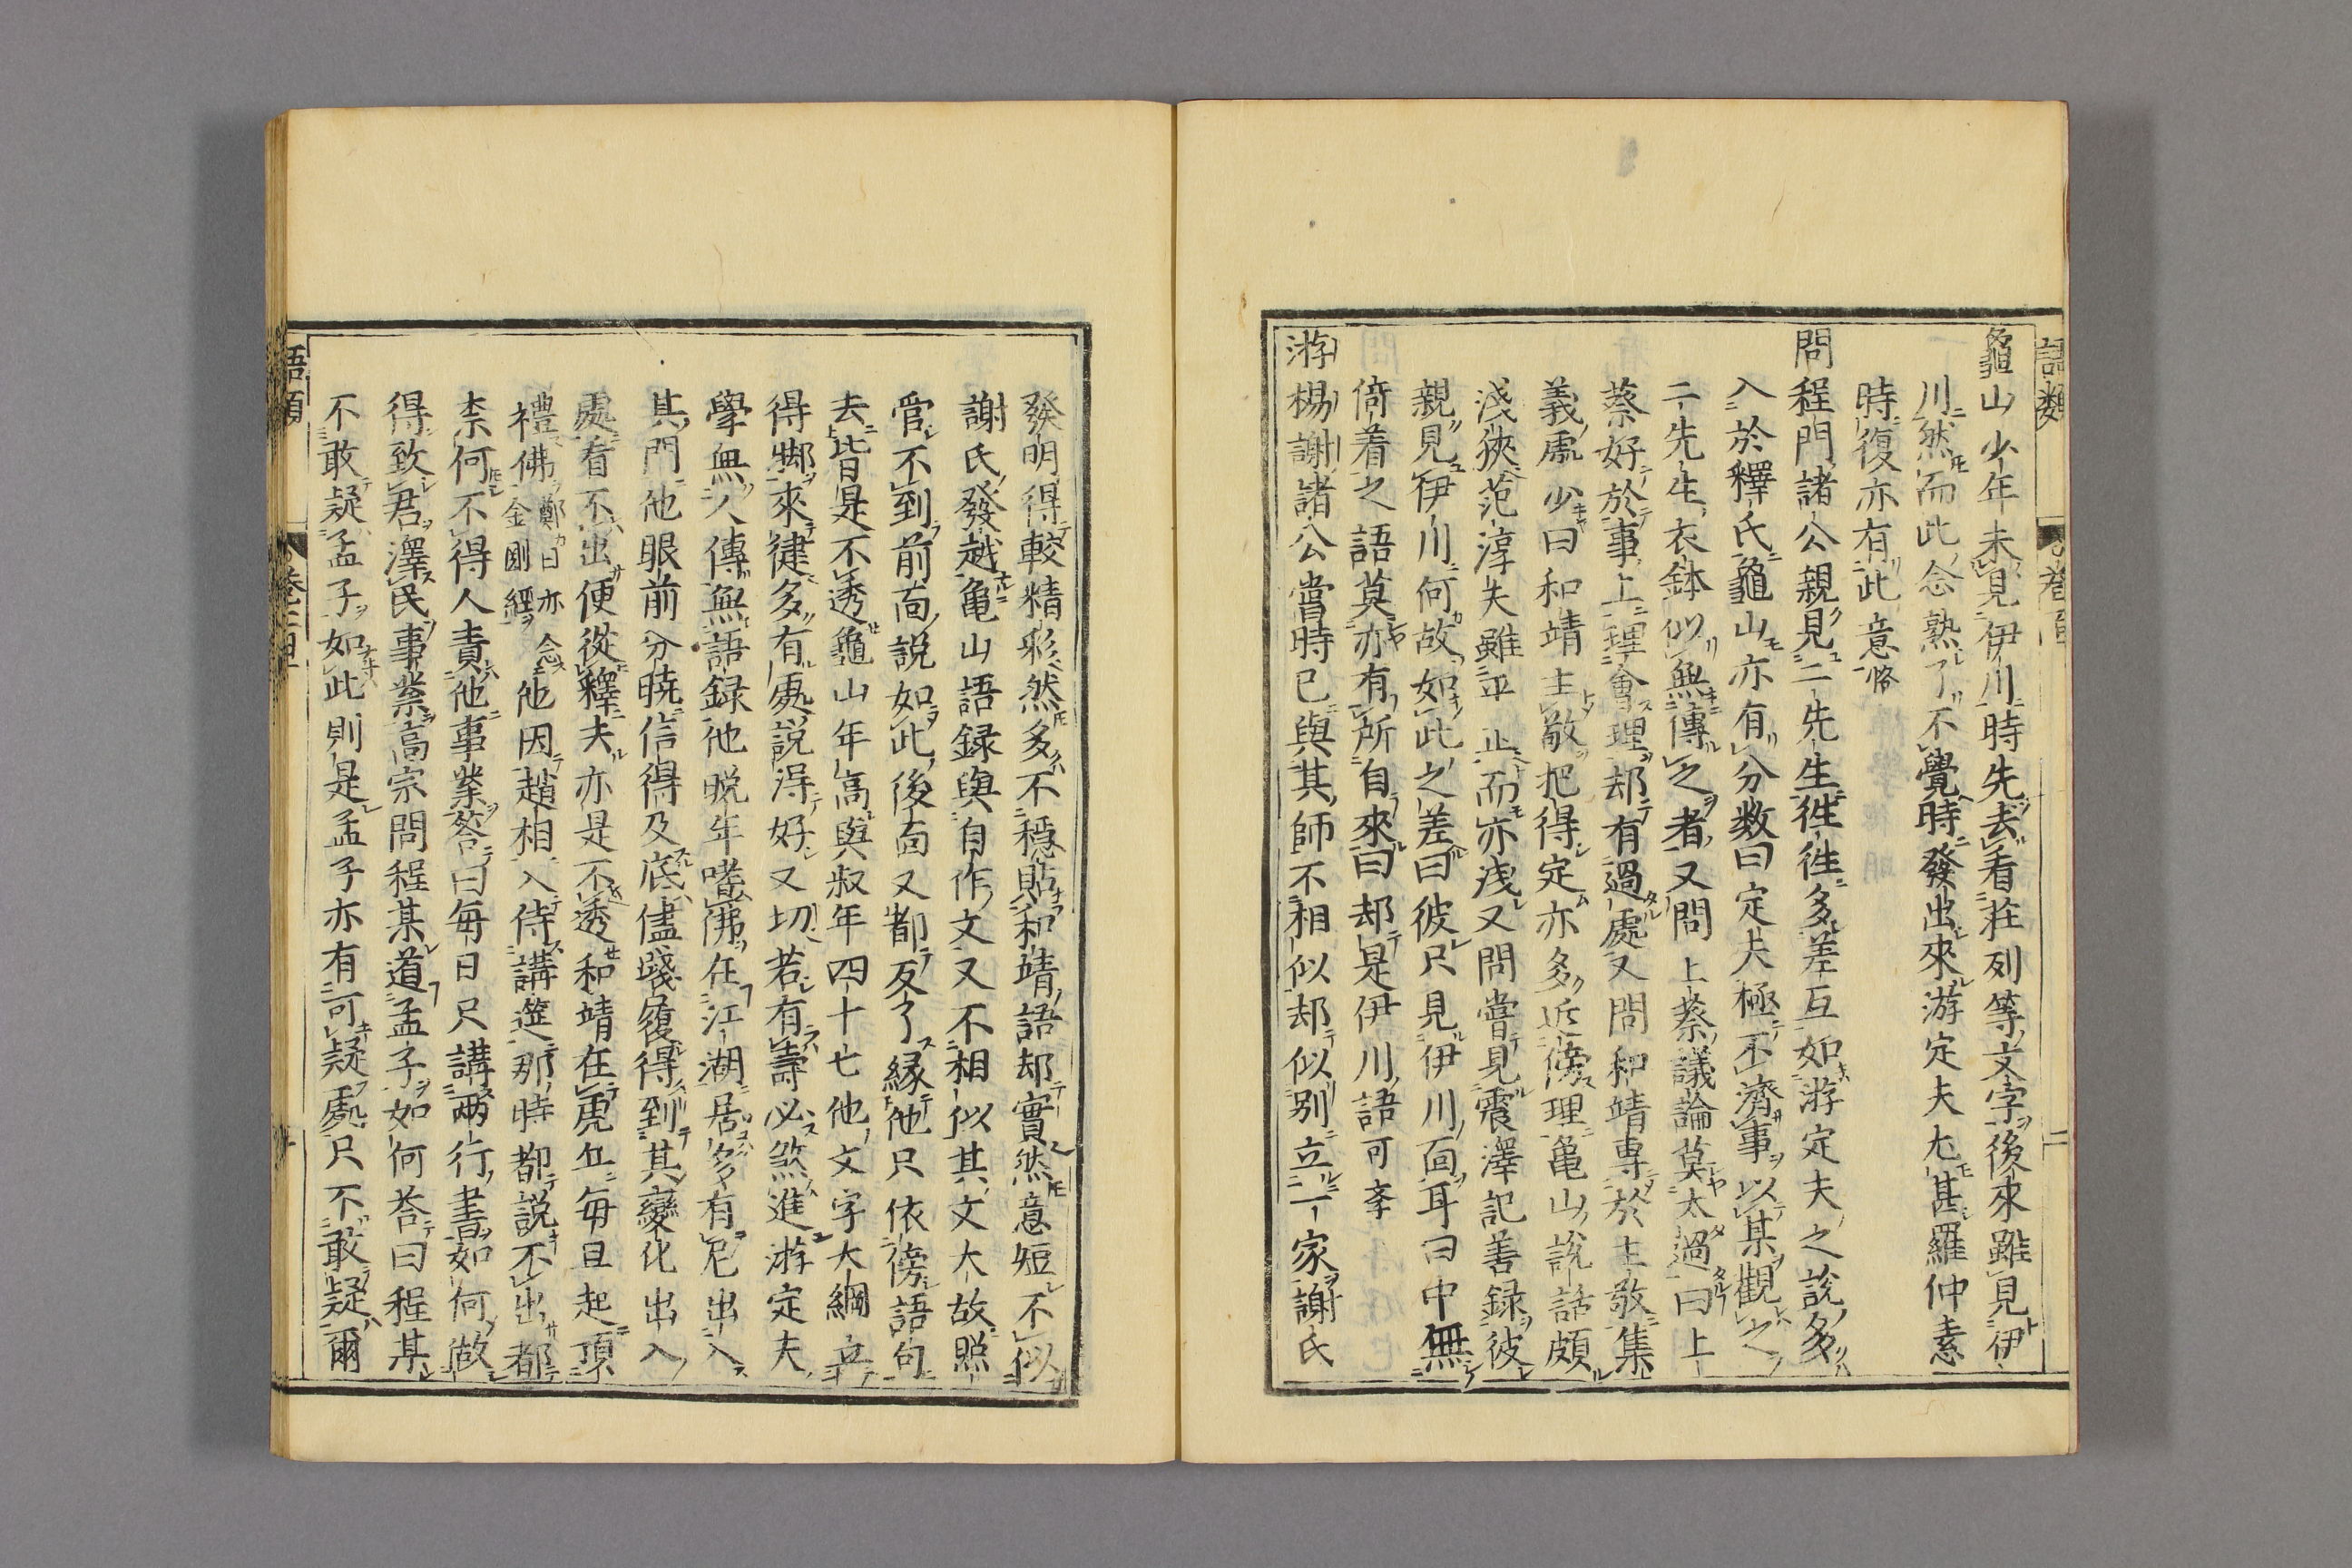 龜山少年未見伊川時先去看莊列等文字後來雖見伊
川然而此念熟了不覺時發出來游定夫尤甚羅仲素
時復亦有此意恪
問程門諸公親見二先生徃徃多差互如游定夫之說多
入於釋氏龜山亦有分数曰定夫極不濟事以某觀之
二先生衣鉢似無傳之者又問上蔡議論莫太過曰上
蔡好於事上理會理却有過處又問和靖專於主敬集
義處少曰和靖主敬把得定亦多近傍理亀山說話頗
淺狹范淳夫雖平正而亦淺又問嘗見震澤記善録彼
親見伊川何故如此之差曰彼只見伊川面耳曰中無
倚着之語莫亦有所自來曰却是伊川語可斈
游楊謝諸公當時已與其師不相似却似别立一家謝氏
發明得較精彩然多不穩貼和靖語却實然意短不似
謝氏發越亀山語録與自作文又不相似其文大故照
管不到前面說如此後面又都反了緣他只依傍語句
去皆是不透龜山年高與叔年四十七他文字大綱立
得脚來健多有處說得好又切若有壽必煞進游定夫
學無人傳無語録他晚年嗜佛在江湖居多有尼出入
其門他眼前分曉信得及底儘踐履得到其變化出入
處看不出便從釋去亦是不透和靖在虎丘每旦起頂
禮佛鄭曰亦念金剛經他因趙相入侍講筵那時都說不出都
柰何不得人責他事業答曰每日只講兩行書如何做
得致君澤民事業高宗問程某道孟子如何答曰程某
不敢疑孟子如此則是孟子亦有可疑處只不敢疑爾
語類
卷百
二
語類